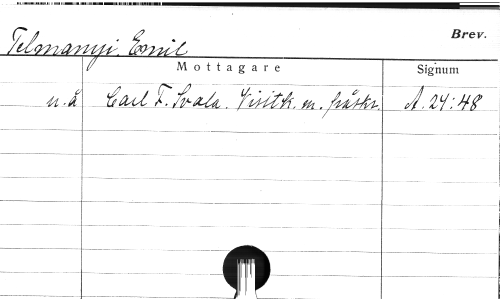 Brev.
Telmanyi, Emil
Mottagare
Signum
u.å Carl F. Svala. Visitk. m. påskr. A. 24:48